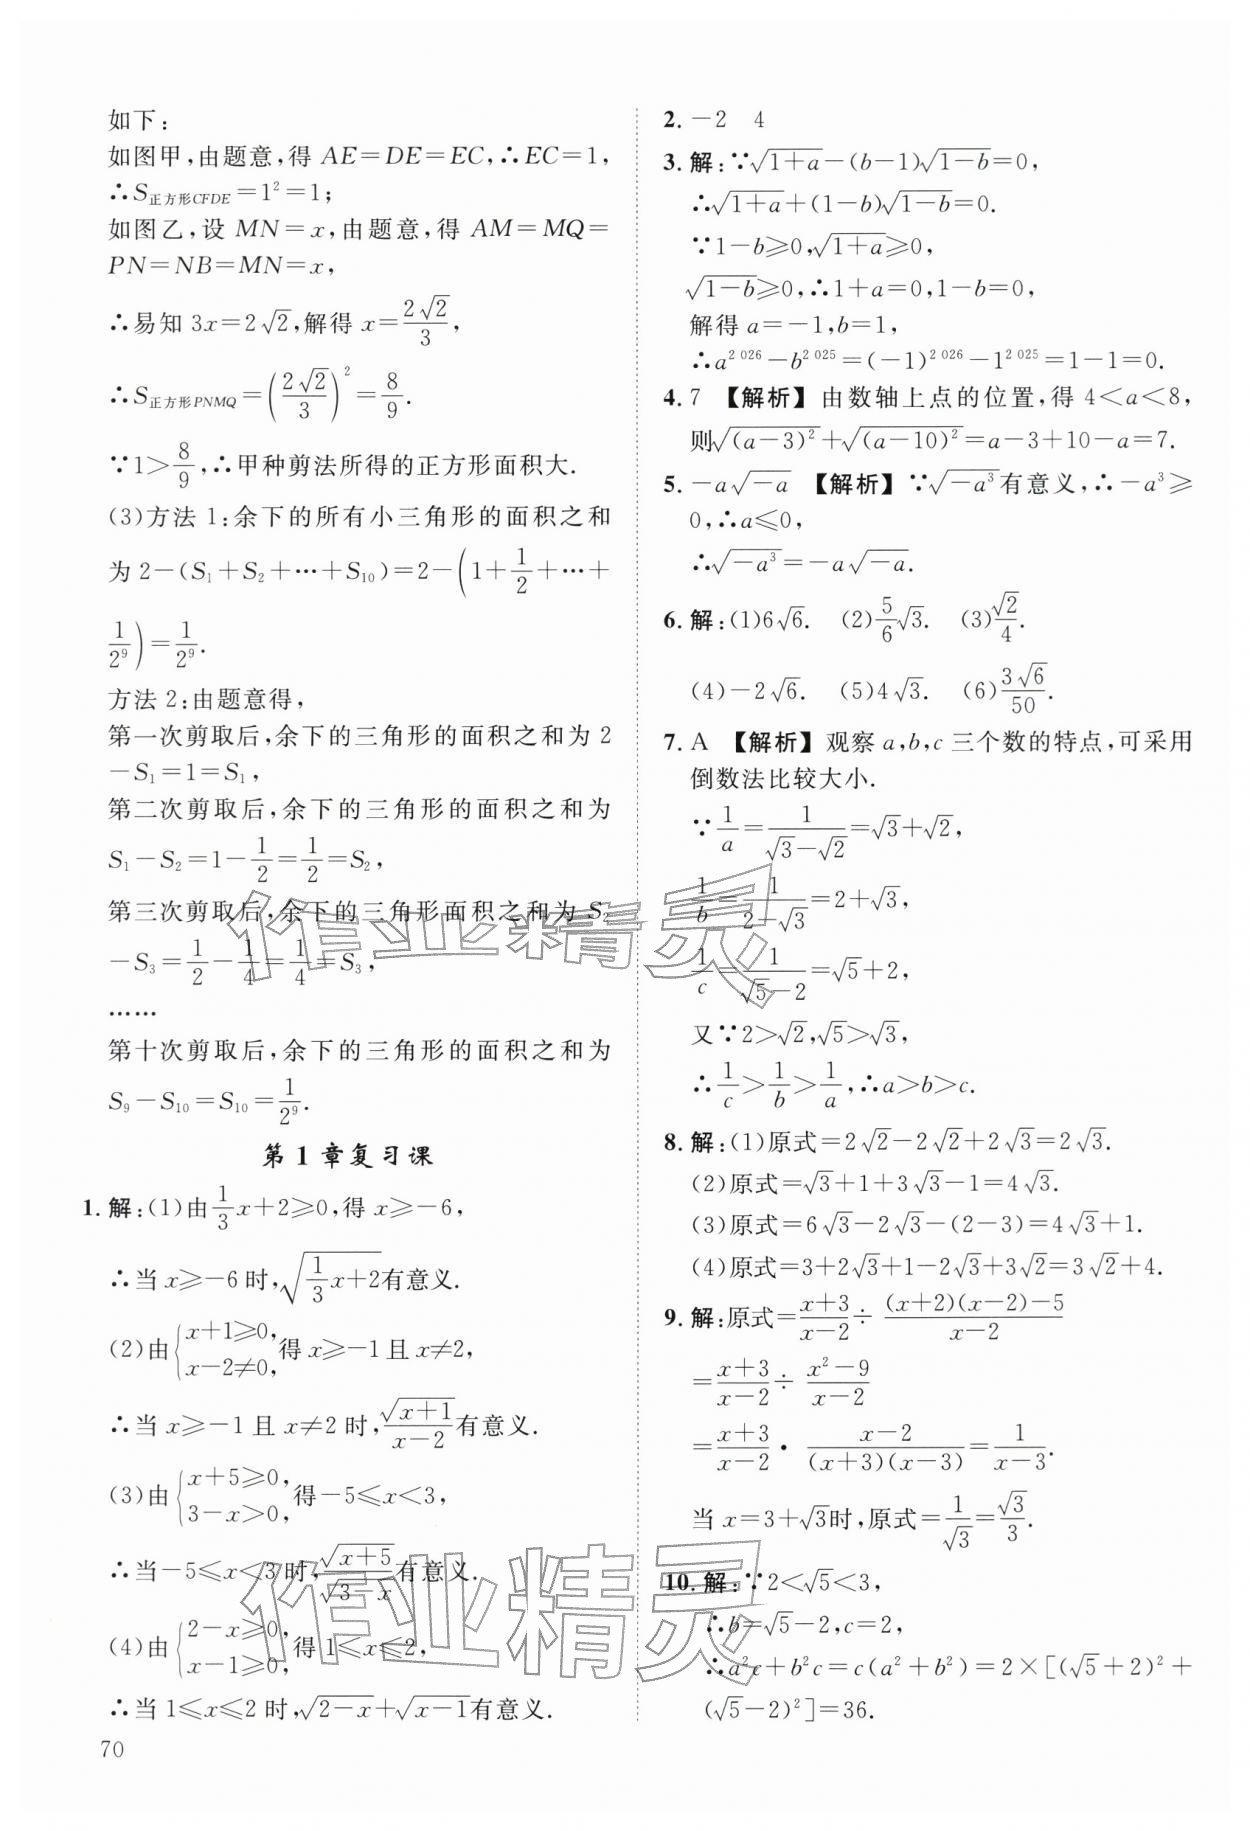 如下:
如图甲,由题意,得 AE=DE=EC,∴EC=1,
∴S正方形CFDE=1²=1;
如图乙,设 MN=x,由题意,得 AM=MQ=
PN=NB=MN=x,
∴易知 3x=2√2,解得 x=2√2/3,
∴S正方形PNMQ=(2√2/3)²=8/9.
∵1>8/9,∴甲种剪法所得的正方形面积大.
(3)方法 1:余下的所有小三角形的面积之和
为 2-(S₁+S₂+…+S₁₀)=2-(1+1/2+…+
1/2⁹)=1/2⁹.
方法 2:由题意得,
第一次剪取后,余下的三角形的面积之和为 2
-S₁=1=S₁,
第二次剪取后,余下的三角形的面积之和为
S₁-S₂=1-1/2=1/2=S₂,
第三次剪取后,余下的三角形面积之和为 S₂
-S₃=1/2-1/4=1/4=S₃,
……
第十次剪取后,余下的三角形的面积之和为
S₉-S₁₀=S₁₀=1/2⁹.
第 1 章复习课
1. 解:(1)由1/3x+2≥0,得 x≥-6,
∴当 x≥-6 时,√(1/3x+2)有意义.
(2)由{x+1≥0, x-2≠0,得 x≥-1 且 x≠2,
∴当 x≥-1 且 x≠2 时,√(x+1)/(x-2)有意义.
(3)由{x+5≥0, 3-x>0,得-5≤x<3,
∴当-5≤x<3时,√(x+5)/√(3-x)有意义.
(4)由{2-x≥0, x-1≥0,得 1≤x≤2,
∴当 1≤x≤2 时,√(2-x)+√(x-1)有意义.
70
2. -2 4
3. 解:∵√(1+a)-(b-1)√(1-b)=0,
∴√(1+a)+(1-b)√(1-b)=0.
∵1-b≥0,√(1+a)≥0,
√(1-b)≥0,∴1+a=0,1-b=0,
解得 a=-1,b=1,
∴a²⁰²⁶-b²⁰²⁵=(-1)²⁰²⁶-1²⁰²⁵=1-1=0.
4. 7 【解析】 由数轴上点的位置,得 4<a<8,
则√((a-3)²)+√((a-10)²)=a-3+10-a=7.
5. -a√(-a) 【解析】 ∵√(-a³)有意义,∴-a³≥
0,∴a≤0,
∴√(-a³)=-a√(-a).
6. 解:(1)6√6. (2)5/6√3. (3)√2/4.
(4)-2√6. (5)4√3. (6)3√6/50.
7. A 【解析】 观察 a,b,c 三个数的特点,可采用
倒数法比较大小.
∵1/a=1/(√3-√2)=√3+√2,
1/b=1/(2-√3)=2+√3,
1/c=1/(√5-2)=√5+2,
又∵2>√2,√5>√3,
∴1/c>1/b>1/a,∴a>b>c.
8. 解:(1)原式=2√2-2√2+2√3=2√3.
(2)原式=√3+1+3√3-1=4√3.
(3)原式=6√3-2√3-(2-3)=4√3+1.
(4)原式=3+2√3+1-2√3+3√2=3√2+4.
9. 解:原式=(x+3)/(x-2)÷((x+2)(x-2)-5)/(x-2)
=(x+3)/(x-2)÷(x²-9)/(x-2)
=(x+3)/(x-2)·(x-2)/((x+3)(x-3))=1/(x-3).
当 x=3+√3时,原式=1/√3=√3/3.
10. 解:∵2<√5<3,
∴b=√5-2,c=2,
∴a²c+b²c=c(a²+b²)=2×[(√5+2)²+
(√5-2)²]=36.
作业精灵
作业精灵